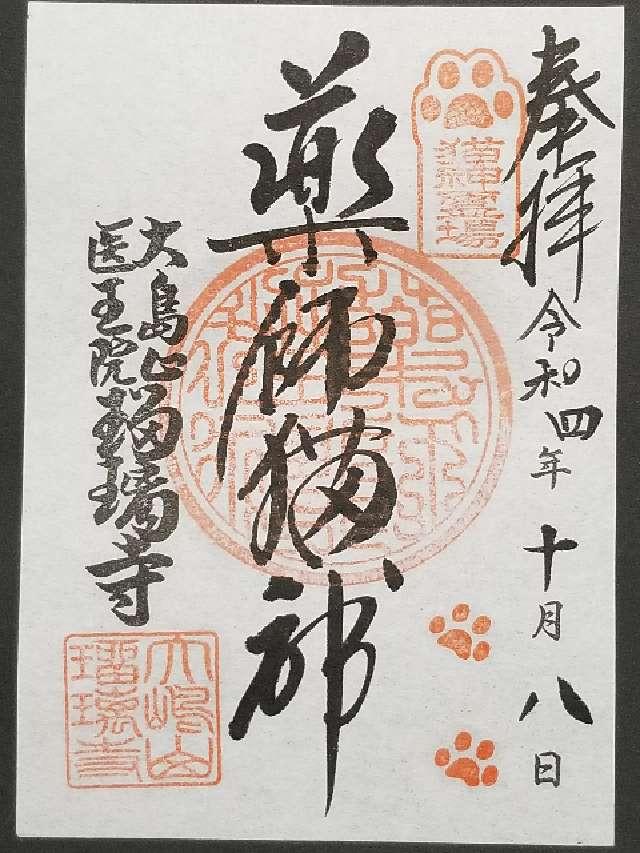 奉拝
令和四年十月八日
猫神霊場
薬師猫神
大島山
医王院
瑠璃寺
大嶋山
瑠璃寺